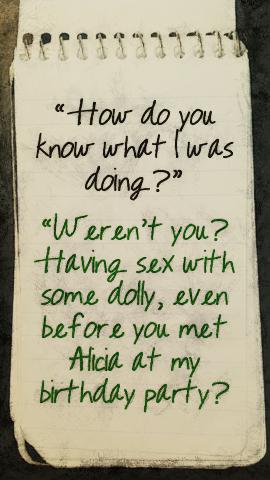 “How do you
know what I was
doing?”
“Weren't you?
Having sex with
some dolly, even
before you met
Alicia at my
birthday party?